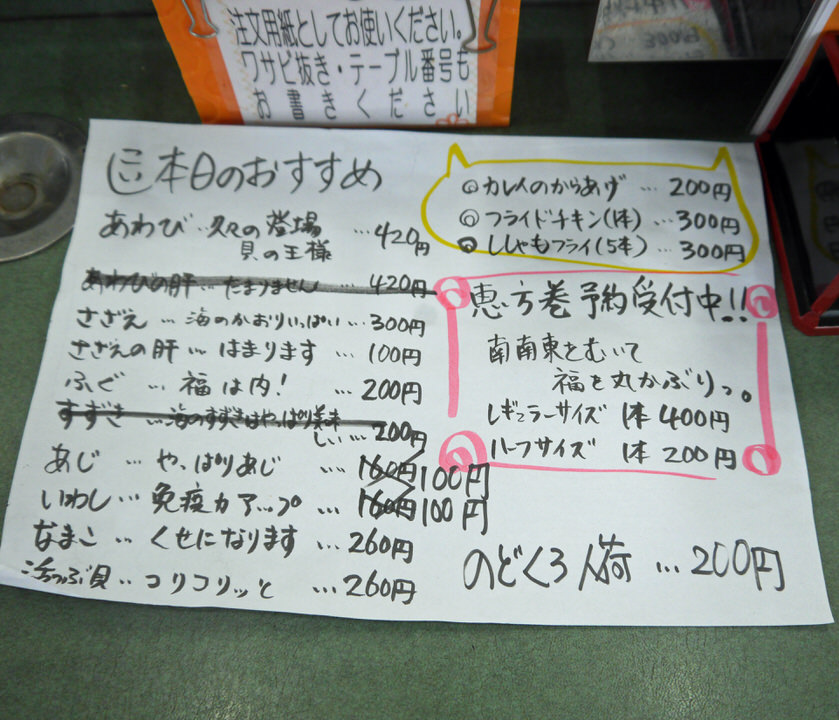 注文用紙としてお使いください。
ワサビ抜き・テーブル番号も
お書きください
本日のおすすめ
あわび…久々の登場 …420円
貝の王様
あわびの肝…たまりません …420円
さざえ…海のかおりいっぱい…300円
さざえの肝…はまります …100円
ふぐ …福は内! …200円
すずき …海のすずきはやっぱり美味
しい…200円
あじ …やっぱりあじ …160円100円
いわし…免疫力アップ …160円100円
なまこ…くせになります …260円
活つぶ貝…コリコリッと …260円
◎カレイのからあげ…200円
◎フライドチキン(1本)…300円
◎ししゃもフライ(5本)…300円
恵方巻予約受付中!!
南南東をむいて
福を丸かぶりっ。
レギュラーサイズ 1本400円
ハーフサイズ 1本200円
のどくろ入荷…200円